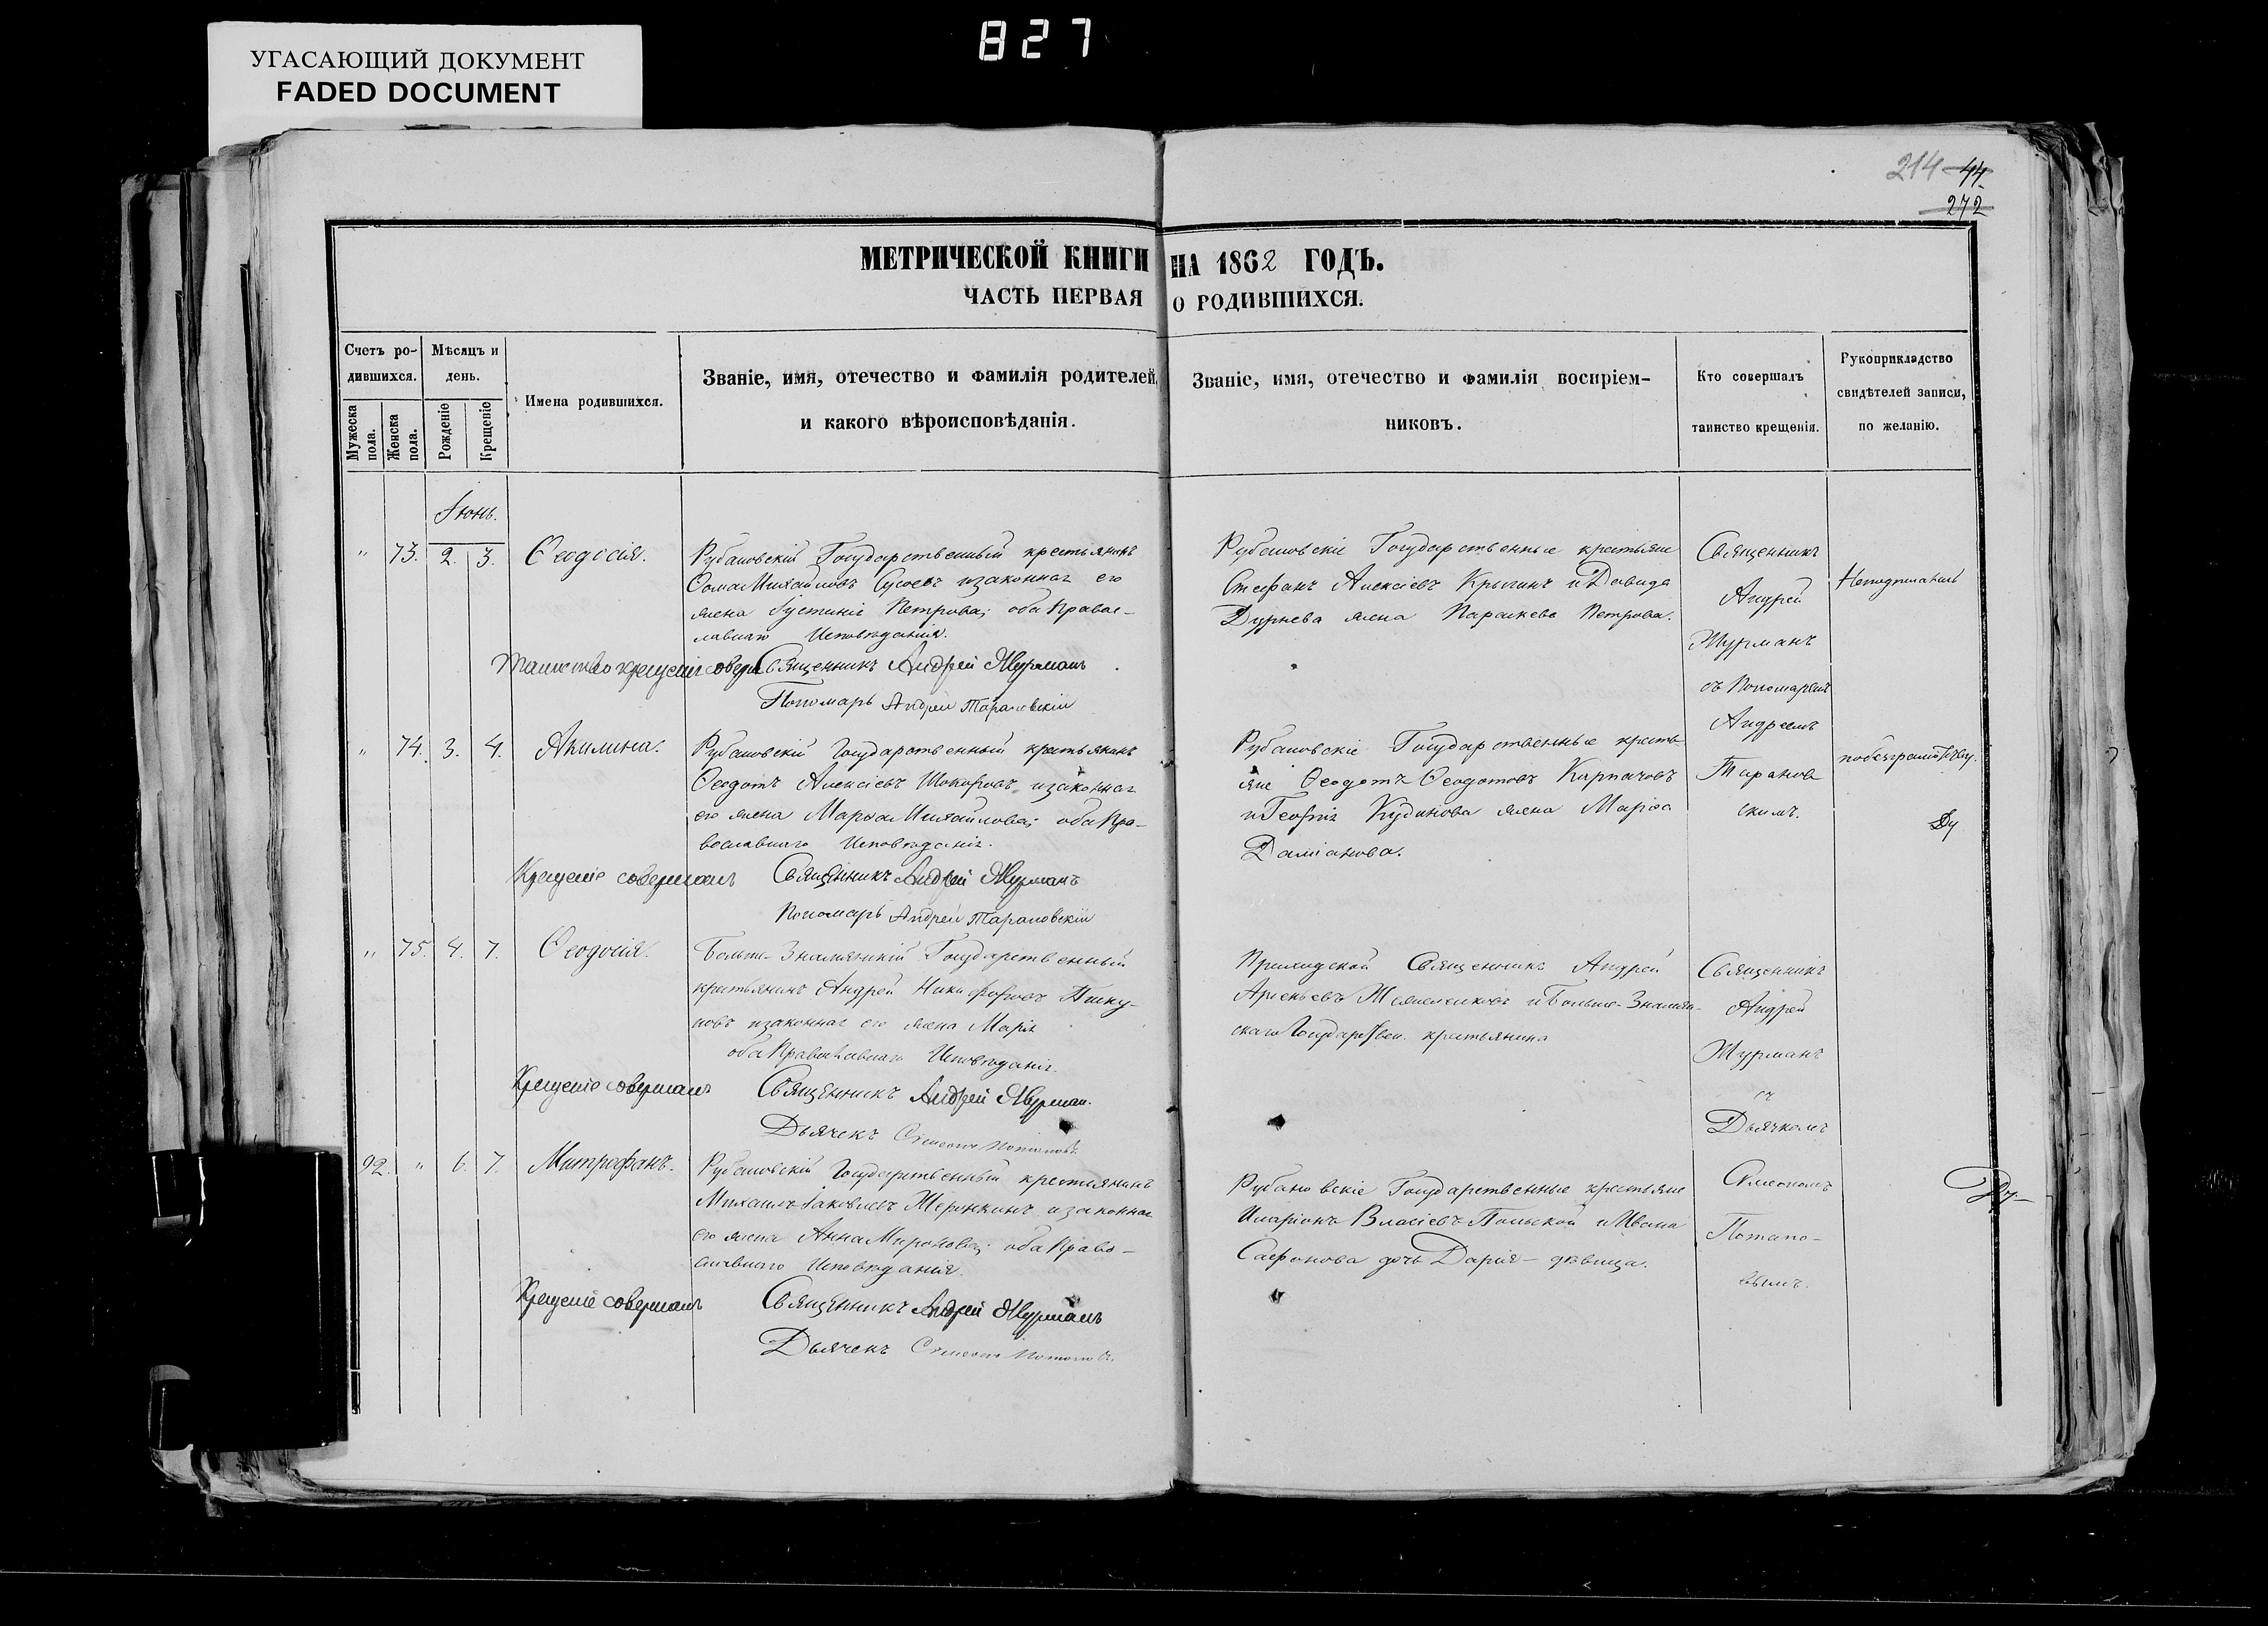 827
УГАСАЮЩИЙ ДОКУМЕНТ
FADED DOCUMENT
214 44.
272
МЕТРИЧЕСКОЙ КНИГИ НА 1862 ГОДЪ.
ЧАСТЬ ПЕРВАЯ О РОДИВШИХСЯ.
Счетъ ро-
дившихся.
Мужеска
пола.
Женска
пола.
Мѣсяцъ и
день.
Рожденіе
Крещеніе
Имена родившихся.
Званіе, имя, отечество и фамилія родителей,
и какого вѣроисповѣданія.
Званіе, имя, отечество и фамилія воспріем-
никовъ.
Кто совершалъ
таинство крещенія.
Рукоприкладство
свидѣтелей записи,
по желанію.
Іюнь.
" 73. 2. 3. Ѳеодосія.
Рубановскій Государственный крестьянинъ
Ѳома Михайловъ изаконная его
жена Іустинія Петрова; оба Правос-
лавнаго Исповѣданія.
Таинство крещенія соверш Священникъ Андрей Журманъ
Пономарь Андрей Тарановскій
Рубановскіе Государственные крестьяне
Стефанъ Алексіевъ Крыгинъ и Давида
Дурнева жена Параскева Петрова.
Священникъ
Андрей
Журманъ
съ Пономаремъ
Андреемъ
Таранов
скимъ.
Неподписались
" 74. 3. 4. Акилина.
Рубановскій Государственный крестьянинъ
Ѳеодотъ Алексіевъ Шокоровъ, изаконная
его жена Марѳа Михайлова; оба Пра-
вославнаго Исповѣданія.
Крещеніе совершалъ Священникъ Андрей Журманъ
Пономарь Андрей Тарановскій
Рубановскіе Государственные кресть-
яне Ѳеодотъ Ѳеодотовъ Карпачовъ
и Георгія Кудинова жена Марѳа
Даміанова.
" 75. 4. 7. Ѳеодосія.
Больше-Знаменскій Государственный
крестьянинъ Андрей Никифоровъ Пику-
новъ изаконная его жена Марія
оба Православнаго Исповѣданія.
Крещеніе совершалъ Священникъ Андрей Журман.
Дьячекъ Симеонъ Потаповъ.
Приходской Священникъ Андрей
Арсеньевъ и Больше-Знамен-
скаго Государствен. крестьянина
Священникъ
Андрей
Журманъ
съ
Дьячкомъ
Симеономъ
Потапо-
вымъ.
92. " 6. 7. Митрофанъ.
Рубановскій Государственный крестьянинъ
Михаилъ Іаковлевъ изаконная
его жена Анна Миронова; оба Право-
славнаго Исповѣданія.
Крещеніе совершалъ Священникъ Андрей Журманъ
Дьячекъ Симеонъ Потаповъ.
Рубановскіе Государственные крестьяне
Иларіонъ Власіевъ Польской и Ивана
Сафонова дочь Дарія - дѣвица.